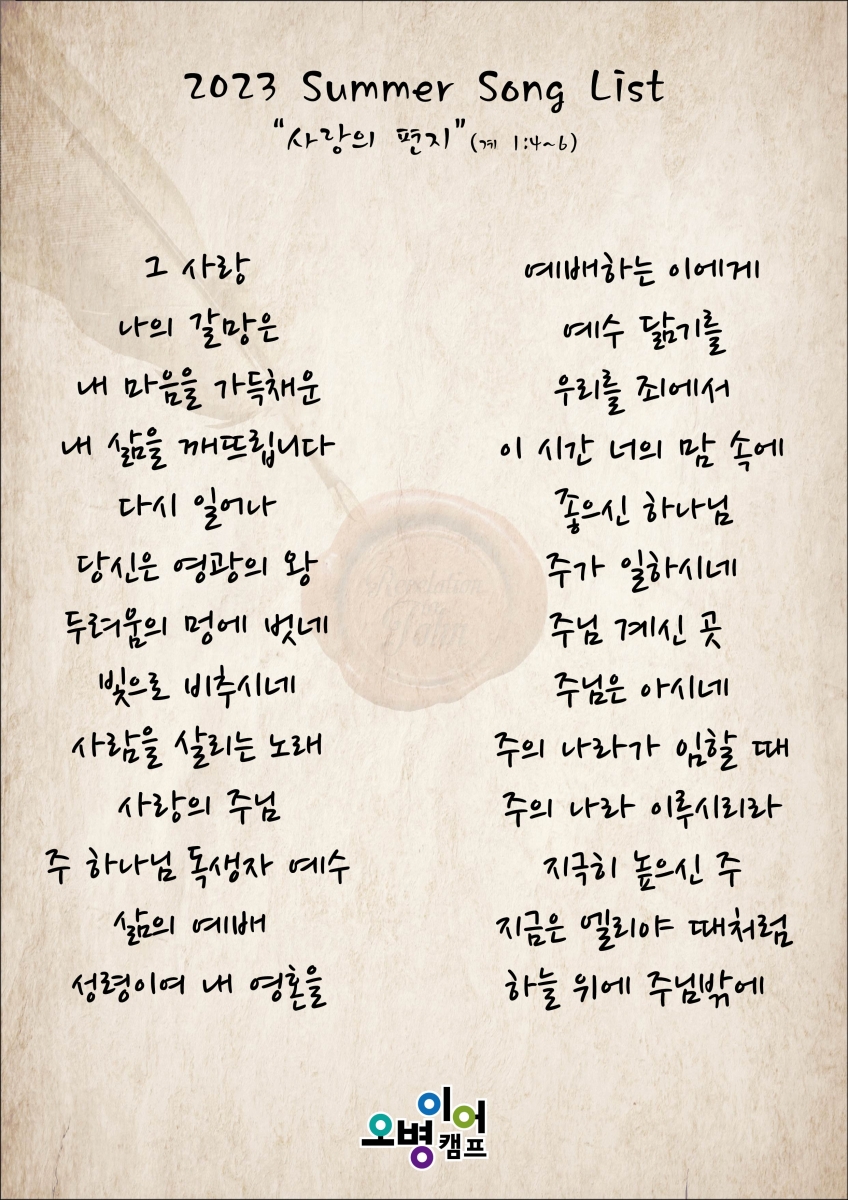 2023 Summer Song List
"사랑의 편지"(계 1:4~6)
그 사랑
나의 갈망은
내 마음을 가득채운
내 삶을 깨뜨립니다
다시 일어나
당신은 영광의 왕
두려움의 멍에 벗네
빛으로 비추시네
사람을 살리는 노래
사랑의 주님
주 하나님 독생자 예수
삶의 예배
성령이여 내 영혼을
예배하는 이에게
예수 닮기를
우리를 죄에서
이 시간 너의 맘 속에
좋으신 하나님
주가 일하시네
주님 계신 곳
주님은 아시네
주의 나라가 임할 때
주의 나라 이루시리라
지극히 높으신 주
지금은 엘리야 때처럼
하늘 위에 주님밖에
Revelation
오병이어
캠프